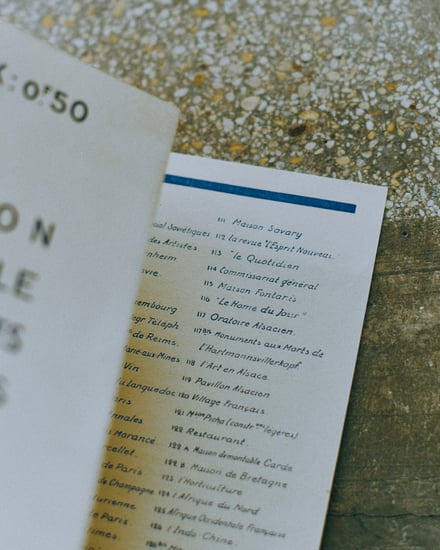 : 0ᶠ50
ON
LE
TS
S
111 Maison Savary
112 la revue "l'Esprit Nouveau"
113 "le Quotidien
114 Commissariat général
115 Maison Fontaris
116 "Le Home du Jour"
117 Oratoire Alsacien.
117 bis Monuments aux Morts de
l'Hartmannsvillerkopf
118 l'Art en Alsace
119 Pavillon Alsacien
120 Village Français
121 Mson Picha (constr ons légères)
122 Restaurant.
122 A Maison demontable Cards
122 B Maison de Bretagne
123 l'Horticulture
124 l'Afrique du Nord
125 Afrique Occidentale Française
126 l'Indo-Chine
Soviétiques
des Artistes
nheim
vie.
embourg
Teleph
de Reims.
aux Mines
Vin
Languedoc
aris
nnales
Morancé
rcellet.
de Paris
de Champagne
urienne
de Paris.
limes.